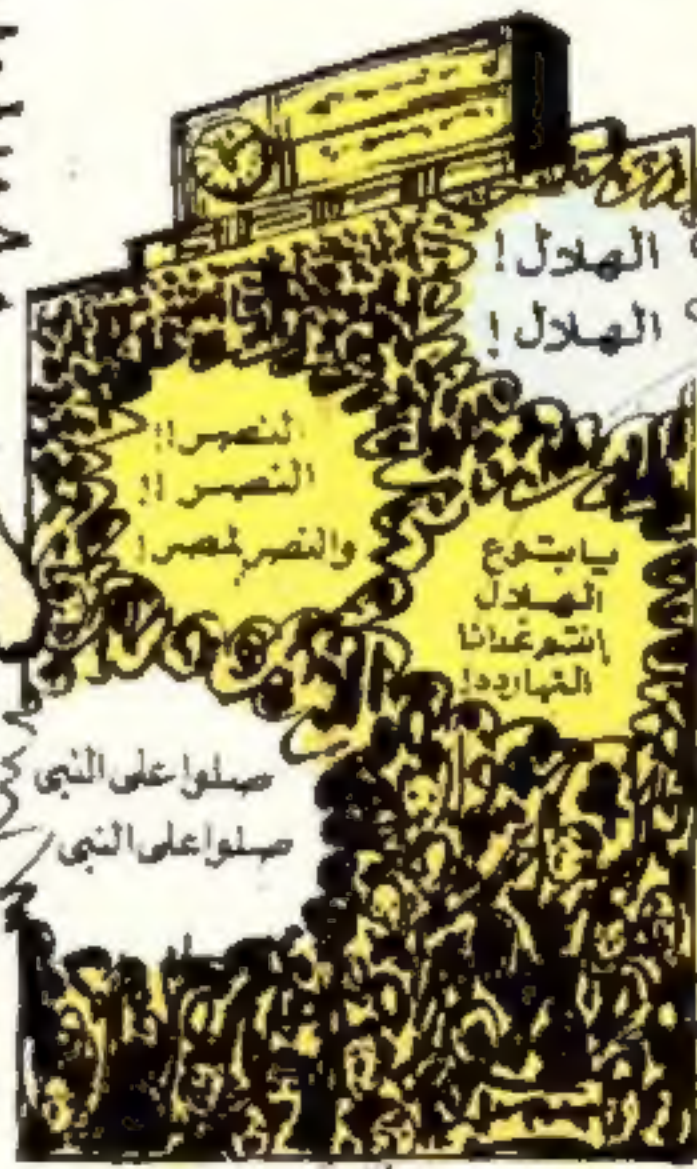 الهلال !
الهلال !
النصر !!
النصر !!
والنصر لمصر !
يا بتوع
الهلال
إنتم غدانا
النهارده !
صلوا على النبى
صلوا على النبى